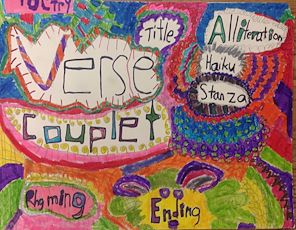 Poetry
Title
Alliteration
Verse
Haiku
Stanza
Couplet
Rhyming
Ending